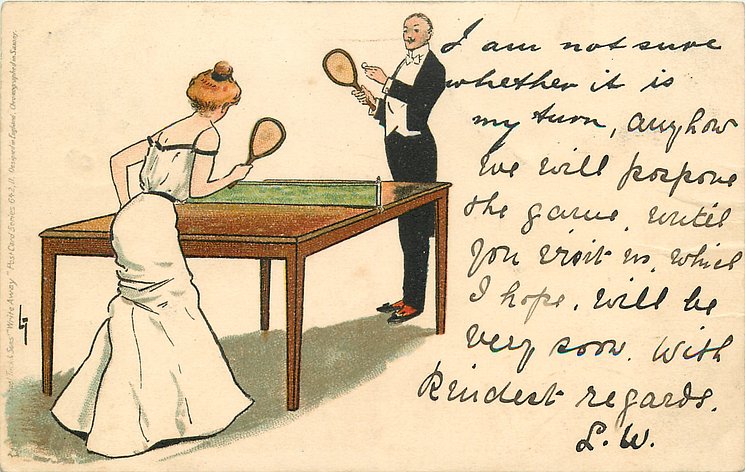 I am not sure
whether it is
my turn, anyhow
we will pospone
the game, until
you visit us, which
I hope, will be
very soon. With
kindest regards.
L. W.
"Write Away" Post Card Series 642, II. Designed in England, Chromographed in Saxony.